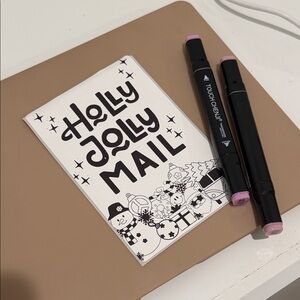 HOLLY
JOLLY
MAIL
TOUCHCNEW